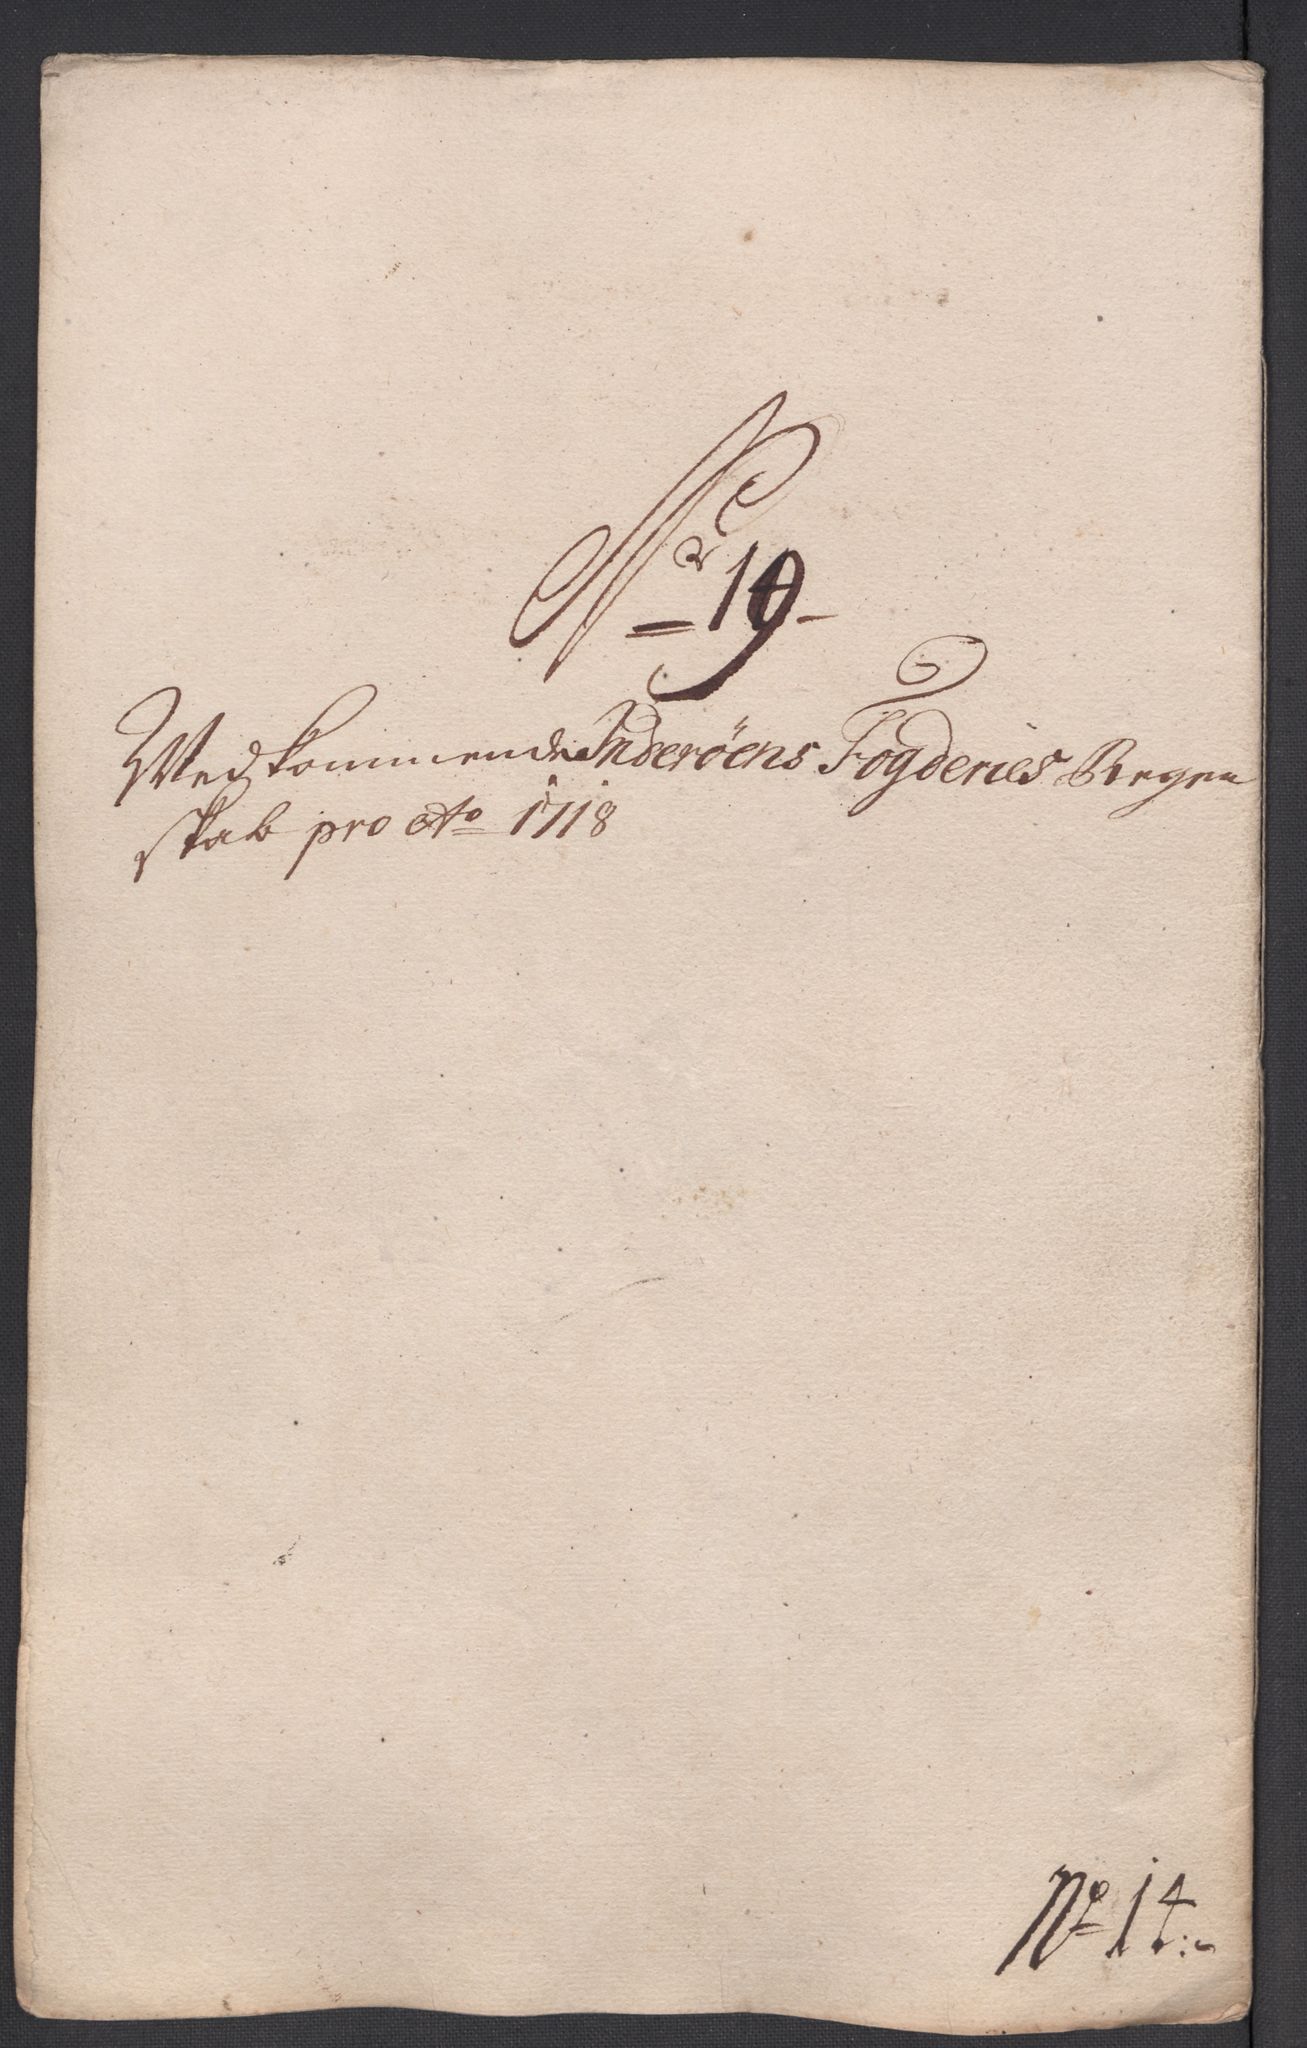 Nr 19
Wedkommende Inderöens Fogderies Regen
skab pro Ao 1718
No 14